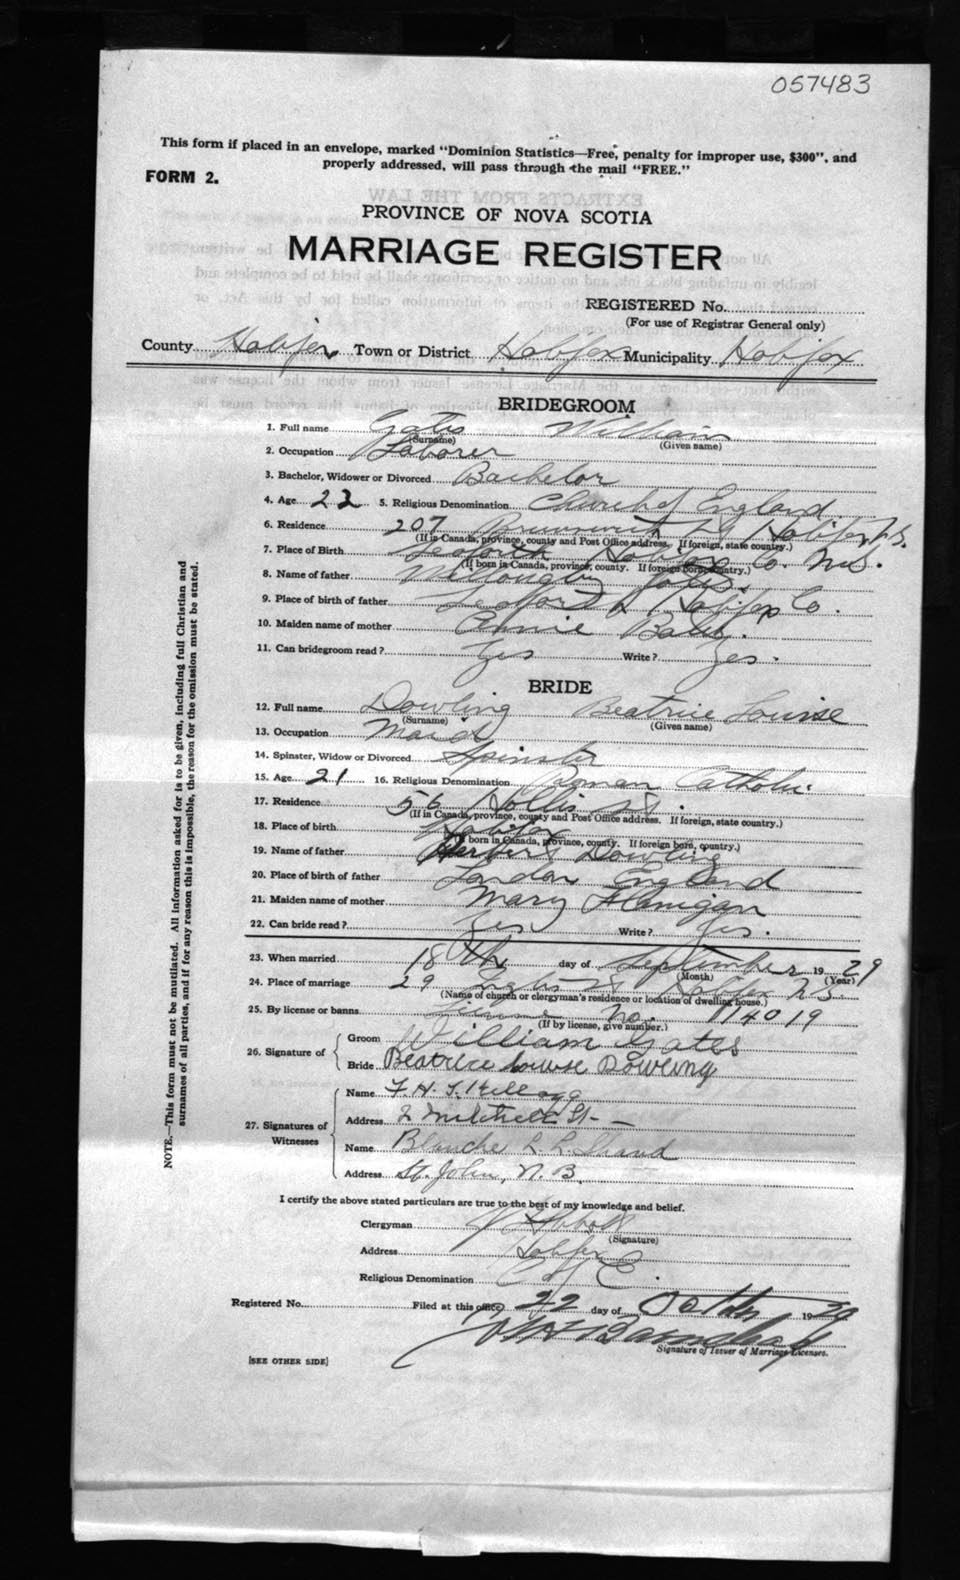 057483
This form if placed in an envelope, marked "Dominion Statistics—Free, penalty for improper use, $300", and
properly addressed, will pass through the mail "FREE."
FORM 2.
PROVINCE OF NOVA SCOTIA
MARRIAGE REGISTER
REGISTERED No.
(For use of Registrar General only)
County Halifax Town or District Halifax Municipality Halifax
BRIDEGROOM
1. Full name Gates William
(Surname) (Given name)
2. Occupation Laborer
3. Bachelor, Widower or Divorced Bachelor
4. Age 22 5. Religious Denomination Church of England
6. Residence 207 Brunswick St Halifax N.S.
(If in Canada, province, county and Post Office address. If foreign, state country.)
7. Place of Birth Seaforth Halifax Co. N.S.
(If born in Canada, province, county. If foreign born, country.)
8. Name of father Willoughby Gates
9. Place of birth of father Seaforth Halifax Co.
10. Maiden name of mother Annie
11. Can bridegroom read? Yes Write? Yes.
BRIDE
12. Full name Dowling Beatrice Louise
(Surname) (Given name)
13. Occupation Maid
14. Spinster, Widow or Divorced Spinster
15. Age 21 16. Religious Denomination Roman Catholic
17. Residence 56 Hollis St.
(If in Canada, province, county and Post Office address. If foreign, state country.)
18. Place of birth Halifax
(If born in Canada, province, county. If foreign born, country.)
19. Name of father Herbert Dowling
20. Place of birth of father London England
21. Maiden name of mother Mary Flanigan
22. Can bride read? Yes Write? Yes.
23. When married 18th day of September 1929
(Month) (Year)
24. Place of marriage 29 Inglis St Halifax N.S.
(Name of church or clergyman's residence or location of dwelling house.)
25. By license or banns License No. 114019
(If by license, give number.)
26. Signature of
Groom William Gates
Bride Beatrice Louise Dowling
27. Signatures of
Witnesses
Name F. H. T. Kellogg
Address 2 Mitchell St-
Name Blanche L. L. Shand
Address St. John, N. B.
I certify the above stated particulars are true to the best of my knowledge and belief.
Clergyman
(Signature)
Address Halifax
Religious Denomination C of E.
Registered No. Filed at this office 22 day of October 1929
Signature of Issuer of Marriage Licenses.
[SEE OTHER SIDE]
NOTE.—This form must not be mutilated. All information asked for is to be given, including full Christian and
surnames of all parties, and if for any reason this is impossible, the reason for the omission must be stated.